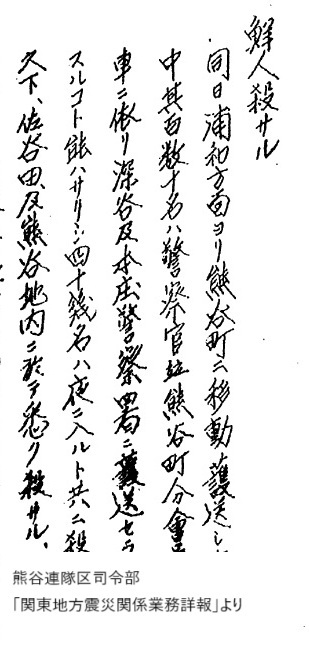 鮮人殺サル
同日浦和方面ヨリ熊谷町ニ移動護送シ
中其百数十名ハ警察官並熊谷町分會
車ニ依リ深谷及本庄警察署ニ護送セラ
スルコト能ハサリシ四十幾名ハ夜ニ入ルト共ニ殺
久下、佐谷田及熊谷地内ニ於テ悉ク殺サル、
熊谷連隊区司令部
「関東地方震災関係業務詳報」より